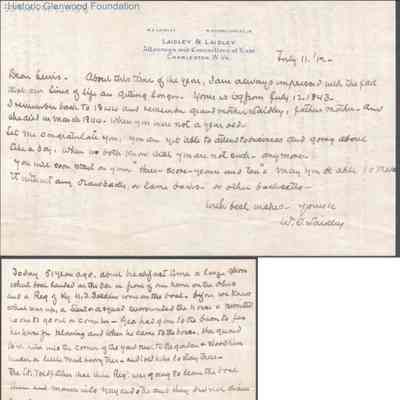 Historic Glenwood Foundation
LAIDLEY & LAIDLEY
Attorneys and Counsellors at Law
CHARLESTON, W. VA.
July 11. '12.
Dear Lewis. About this time of the year, I am always impressed with the fact
that our lines of life are getting longer. Yours is from July 12. 1843.
I remember back to 1844 and remember grandmother Laidley, father's mother and
she died in March 1844. When you were not a year old.
Let me congratulate you, you are yet able to attend to business and going about
like a boy, when we both know that you are not such anymore.
You will soon start on your three-score-years and ten & may you be able to make
it without any drawbacks, or lame backs or other backsets
With best wishes yours
W. S. Laidley
Today 51 years ago, about breakfast time a large
boat landed at the bar in front of our home on the Ohio
and a Reg of Ky. U.S. Soldiers were on the boat. before we knew
what was up, a squad surrounded the house &
us out to get in a Geo had gone to the barn to
his horse for and when he came to the house, the guard
him into the corner of the yard next to the garden &
under a little and told him to stay there
The Lt. Told that this Reg. was going to leave the boat
there and march into and they did not